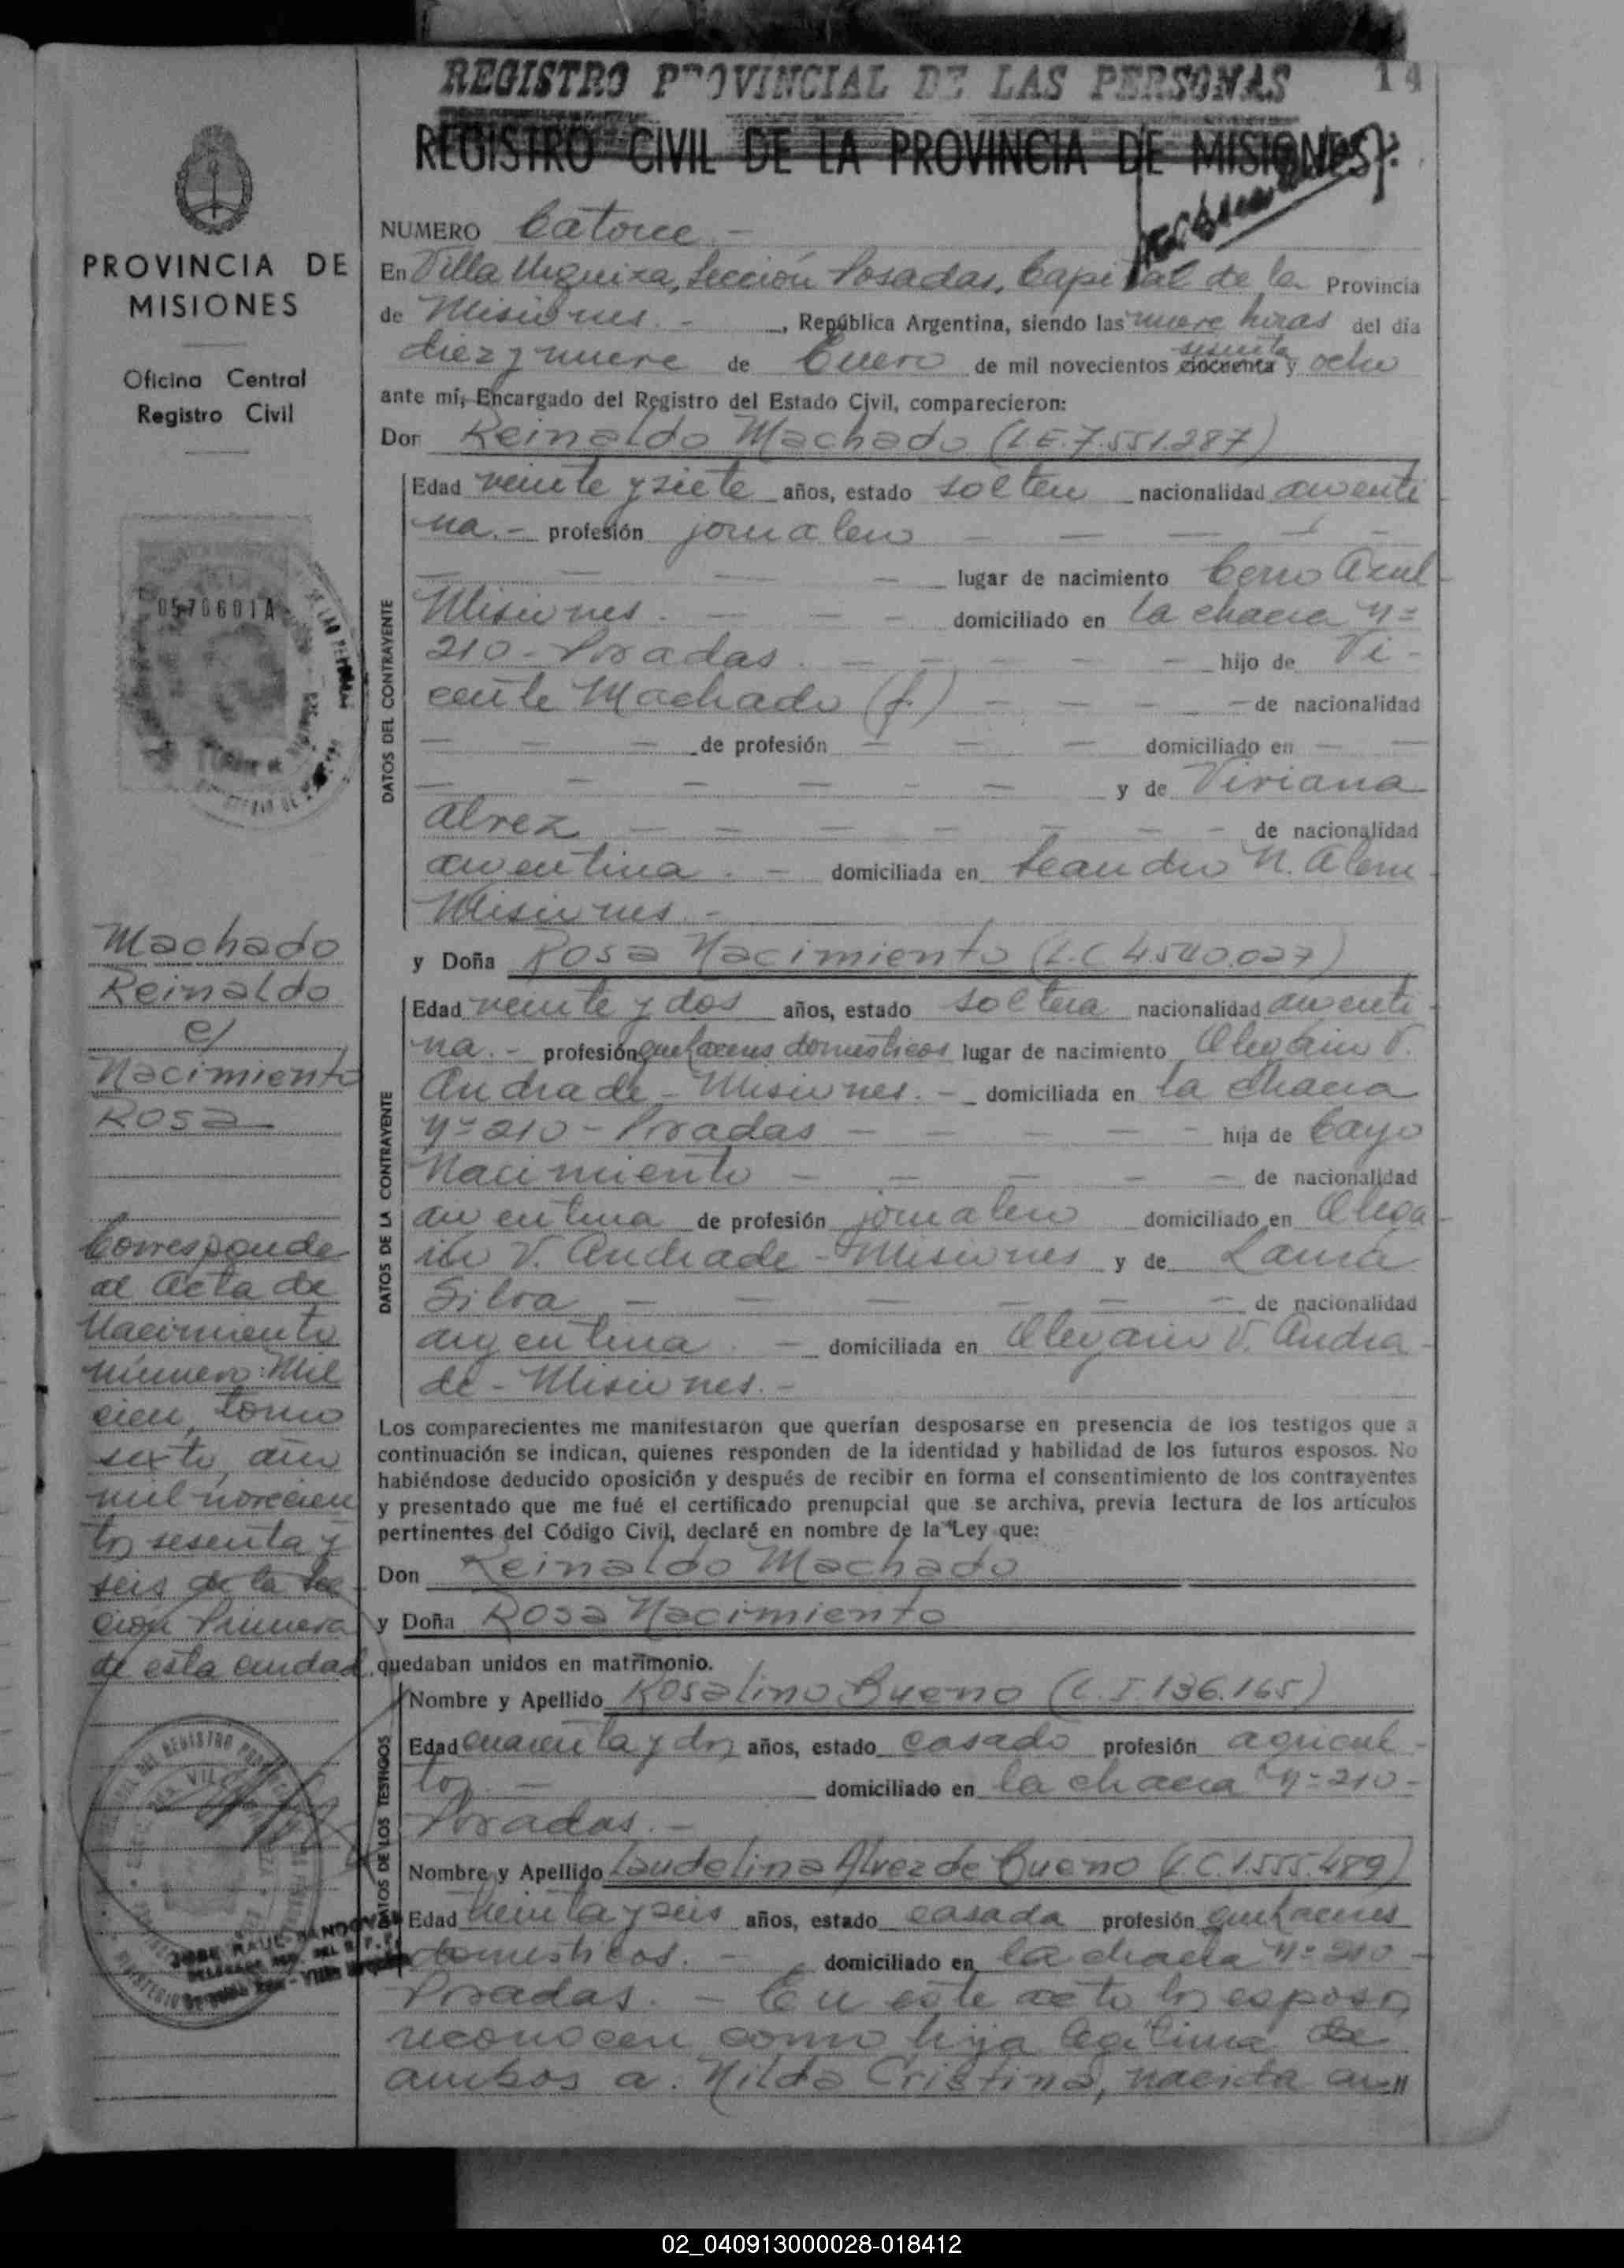 REGISTRO PROVINCIAL DE LAS PERSONAS
14
REGISTRO CIVIL DE LA PROVINCIA DE MISIONES
PROVINCIA DE
MISIONES
Oficina Central
Registro Civil
0570601A
Machado
Reinaldo
c/
Nacimiento
Rosa
Corresponde
al acta de
Nacimiento
número: Mil
cien, tomo
sexto, año
mil novecien
tos sesenta y
seis de la Sec
ción Primera
de esta ciudad.
JOSE RAUL SANDOVAL
NUMERO Catorce.-
En Villa Urquiza, Sección Posadas, Capital de la Provincia
de Misiones.- , República Argentina, siendo las nueve horas del día
diez y nueve de Enero de mil novecientos cincuenta sesenta y ocho
ante mí, Encargado del Registro del Estado Civil, comparecieron:
Don Reinaldo Machado (L.E.7.551.287)
DATOS DEL CONTRAYENTE
Edad veinte y siete años, estado soltero nacionalidad argenti
na.- profesión jornalero
lugar de nacimiento Cerro Azul
Misiones. domiciliado en la chacra Nº
210 - Posadas. hijo de Vi-
cente Machado (f.) de nacionalidad
de profesión domiciliado en
y de Viviana
Alvez de nacionalidad
argentina.- domiciliada en Leandro N. Alem
Misiones.-
y Doña Rosa Nacimiento (L.C 4.540.027)
DATOS DE LA CONTRAYENTE
Edad veinte y dos años, estado soltera nacionalidad argenti
na.- profesión quehaceres domésticos lugar de nacimiento Olegario V.
Andrade - Misiones.- domiciliada en la chacra
Nº 210 - Posadas hija de Cayo
Nacimiento de nacionalidad
argentina de profesión jornalero domiciliado en Olega
rio V. Andrade - Misiones y de Laura
Silva de nacionalidad
argentina.- domiciliada en Olegario V. Andra
de - Misiones.-
Los comparecientes me manifestaron que querían desposarse en presencia de los testigos que a
continuación se indican, quienes responden de la identidad y habilidad de los futuros esposos. No
habiéndose deducido oposición y después de recibir en forma el consentimiento de los contrayentes
y presentado que me fué el certificado prenupcial que se archiva, previa lectura de los artículos
pertinentes del Código Civil, declaré en nombre de la Ley que:
Don Reinaldo Machado
y Doña Rosa Nacimiento
quedaban unidos en matrimonio.
DATOS DE LOS TESTIGOS
Nombre y Apellido Rosalino Bueno (C.I.136.165)
Edad cuarenta y dos años, estado casado profesión agricul-
tor.- domiciliado en la chacra Nº 210-
Posadas.-
Nombre y Apellido Laudelina Alvez de Bueno (L.C.1.555.489)
Edad treinta y seis años, estado casada profesión quehaceres
domésticos.- domiciliado en la chacra Nº 210
Posadas.- En este acto los esposos
reconocen como hija legítima de
ambos a: Nilda Cristina, nacida en//
02_040913000028-018412